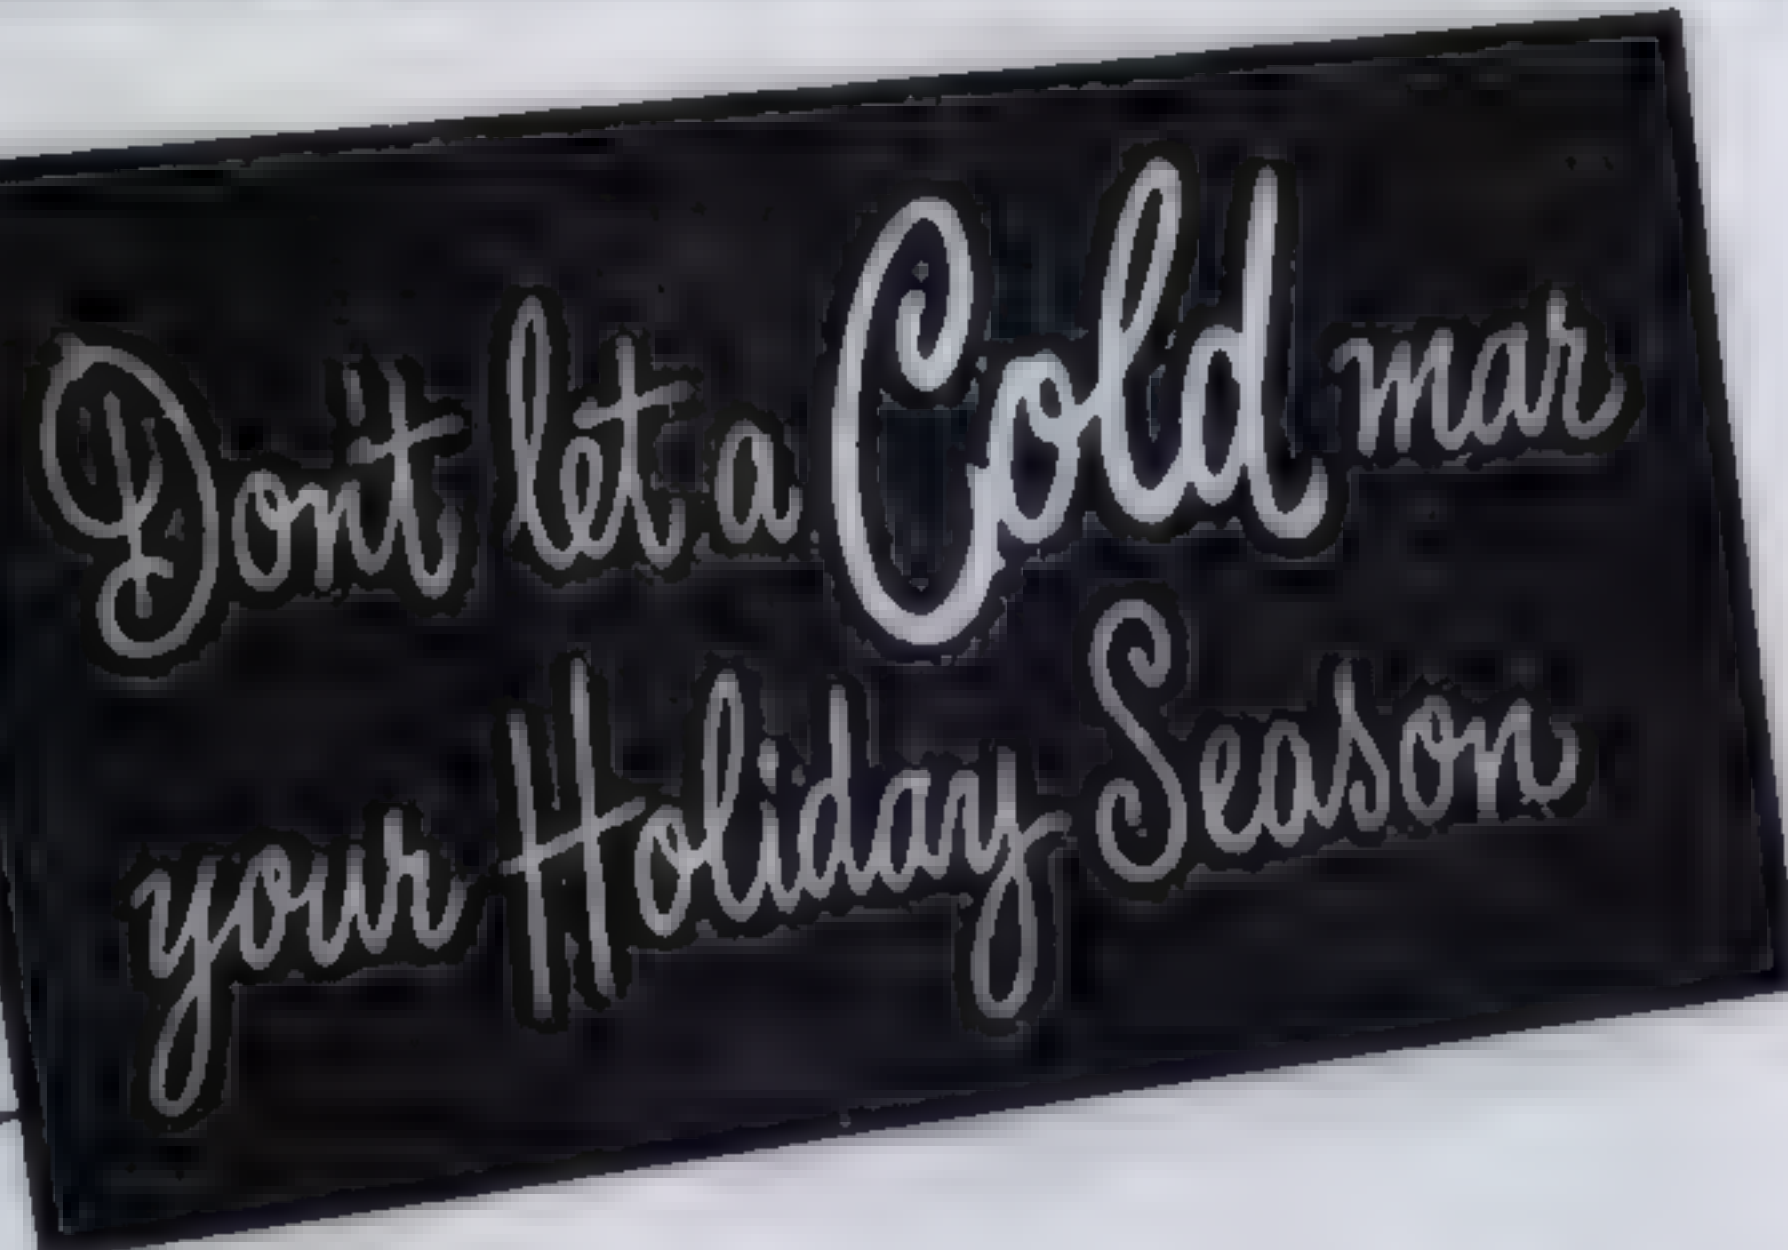 Don't let a Cold mar
your Holiday Season